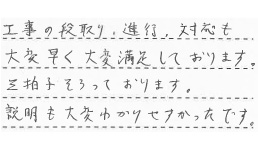 工事の段取り、進行、対応も
大変早く大変満足しております。
三拍子そろっております。
説明も大変わかりやすかったです。